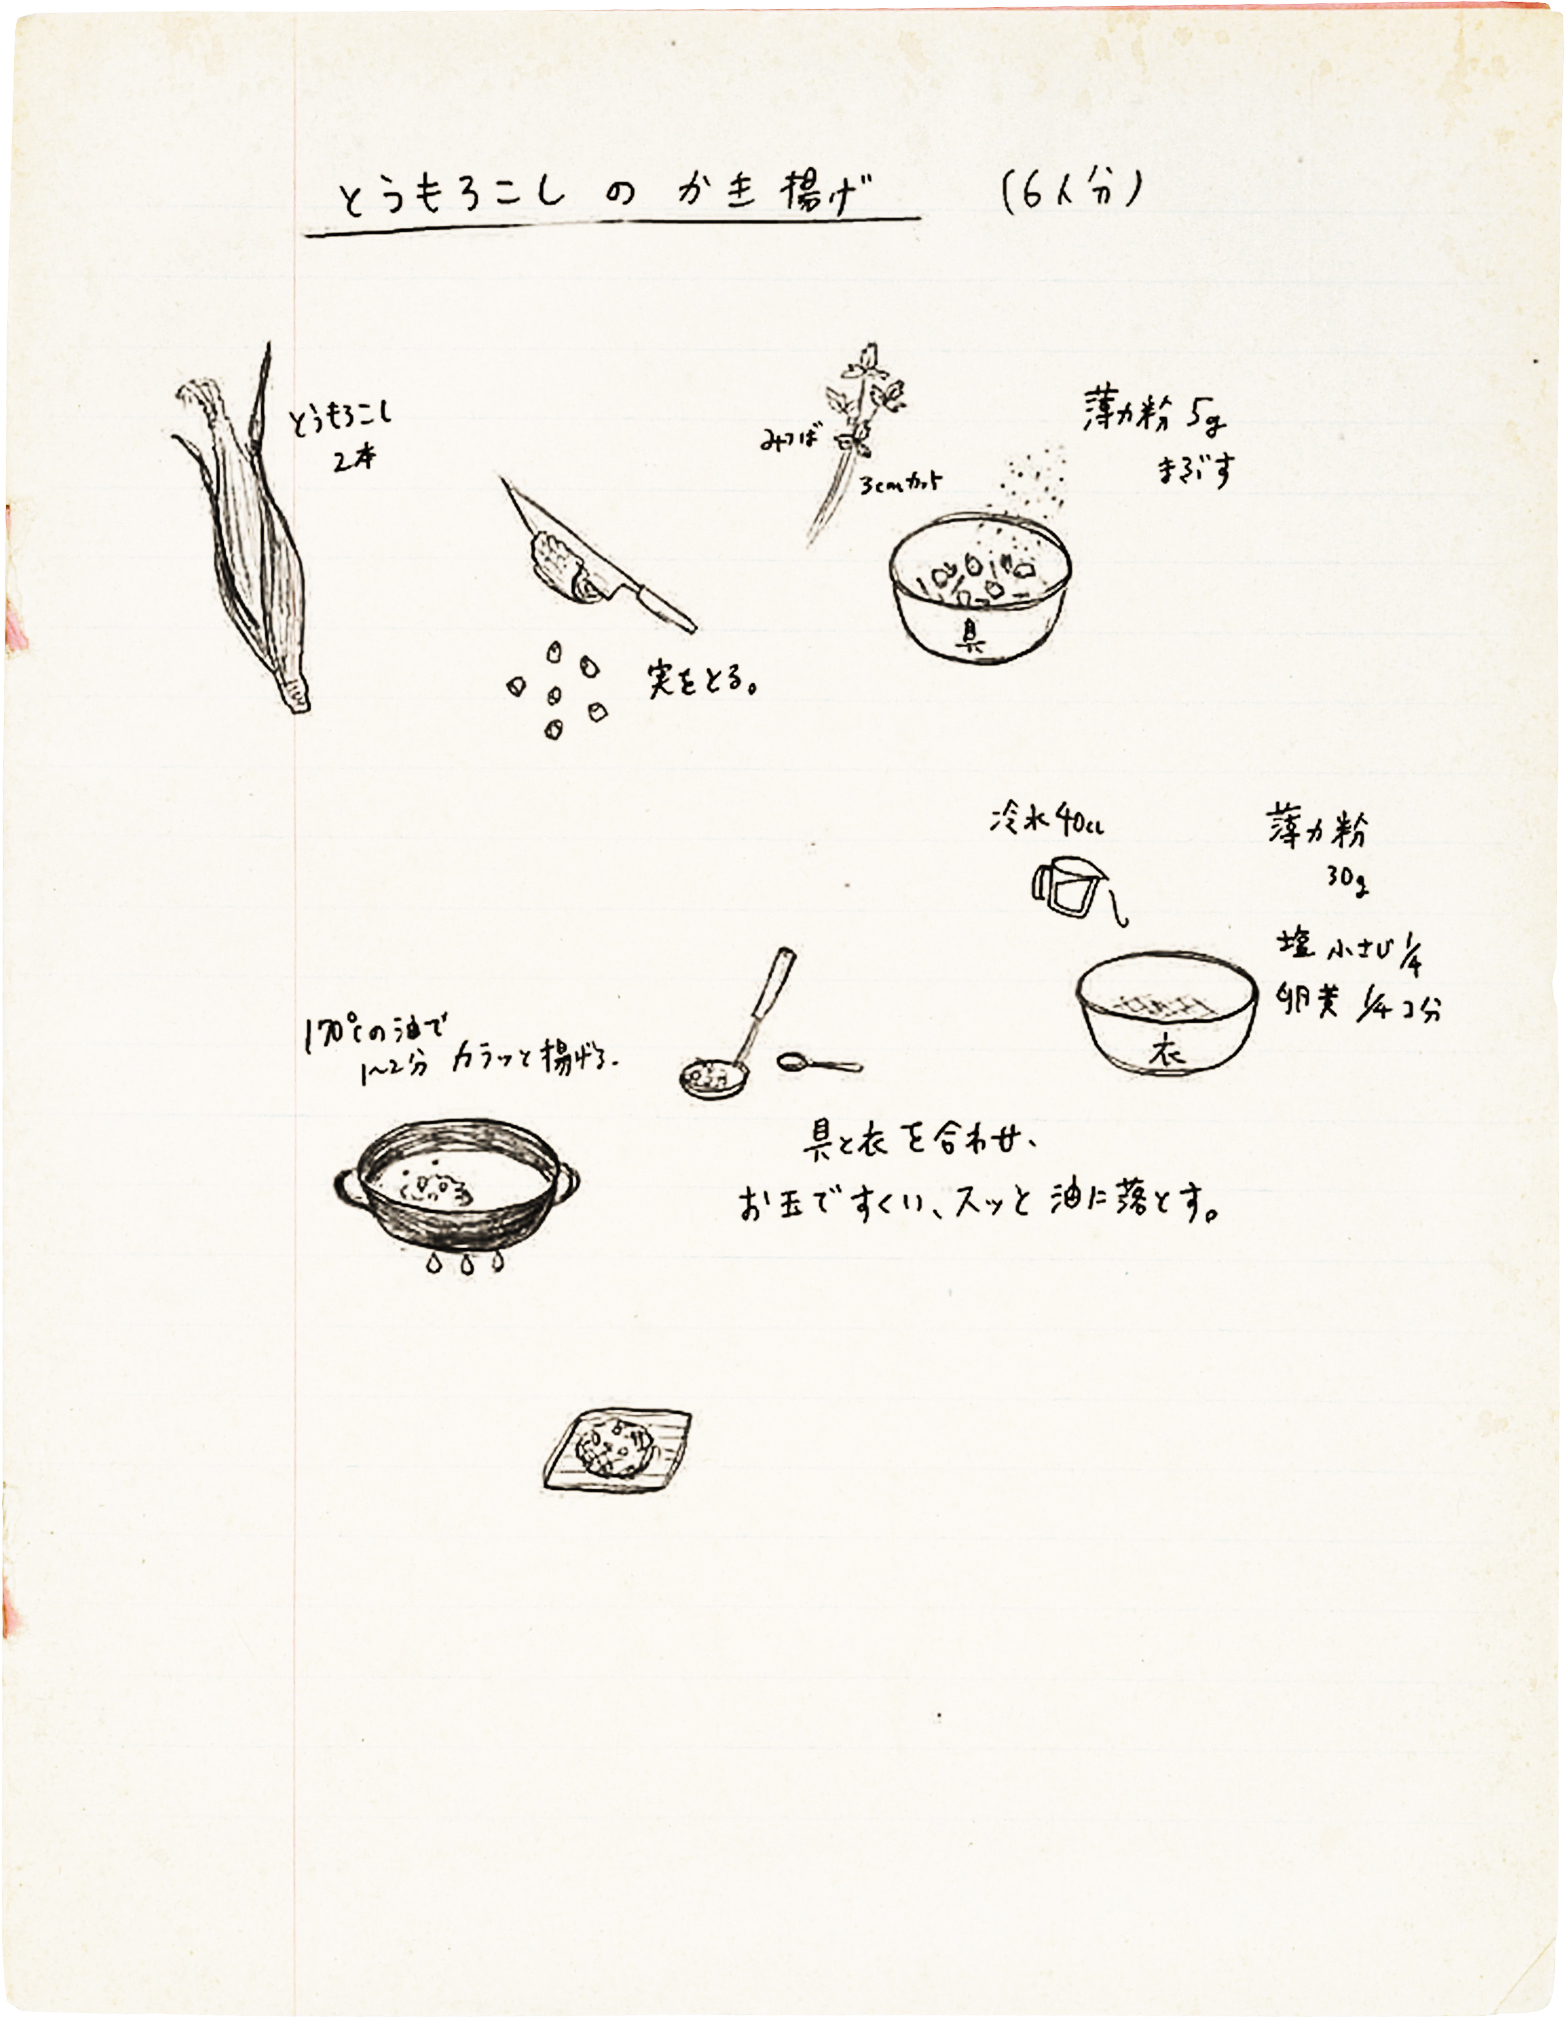 とうもろこしのかき揚げ (6人分)
とうもろこし
2本
実をとる。
みつば
3cmカット
薄力粉 5g
まぶす
具
冷水40cc
薄力粉
30g
塩 小さじ1/4
卵黄 1/4コ分
衣
具と衣を合わせ、
お玉ですくい、スッと油に落とす。
170℃の油で
1〜2分 カラッと揚げる。